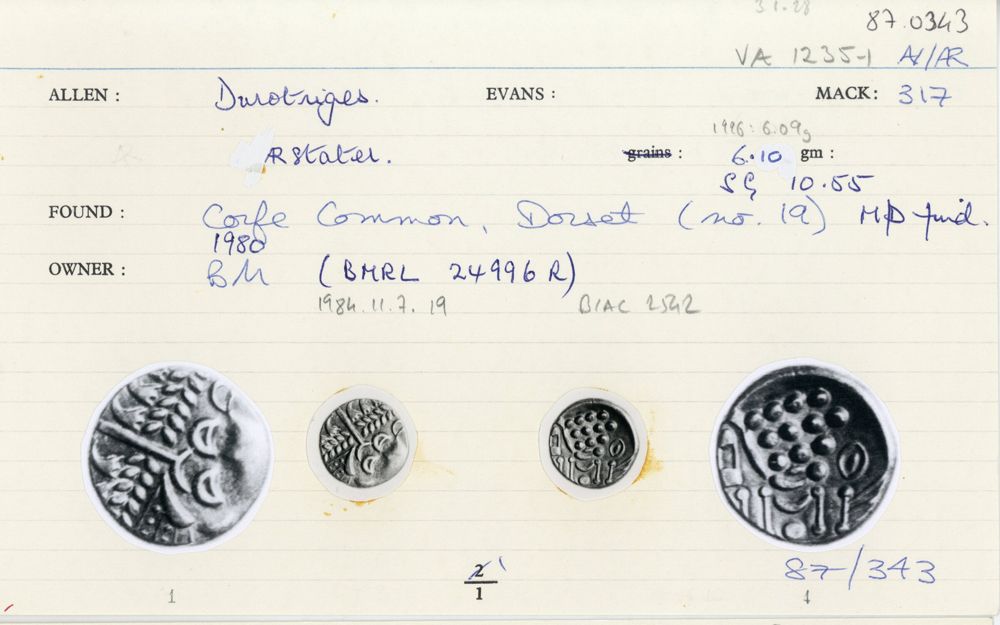 31.28
87.0343
VA 1235-1 AV/AR
ALLEN : Durotriges. EVANS : MACK : 317
1996: 6.09g
AR stater. grains : 6.10 gm :
SG 10.55
FOUND : Corfe Common, Dorset (no. 19) MD find.
1980
OWNER : BM (BMRL 24996R)
1984.11.7.19 BIAC 2542
2 1
1
87/343
1 1